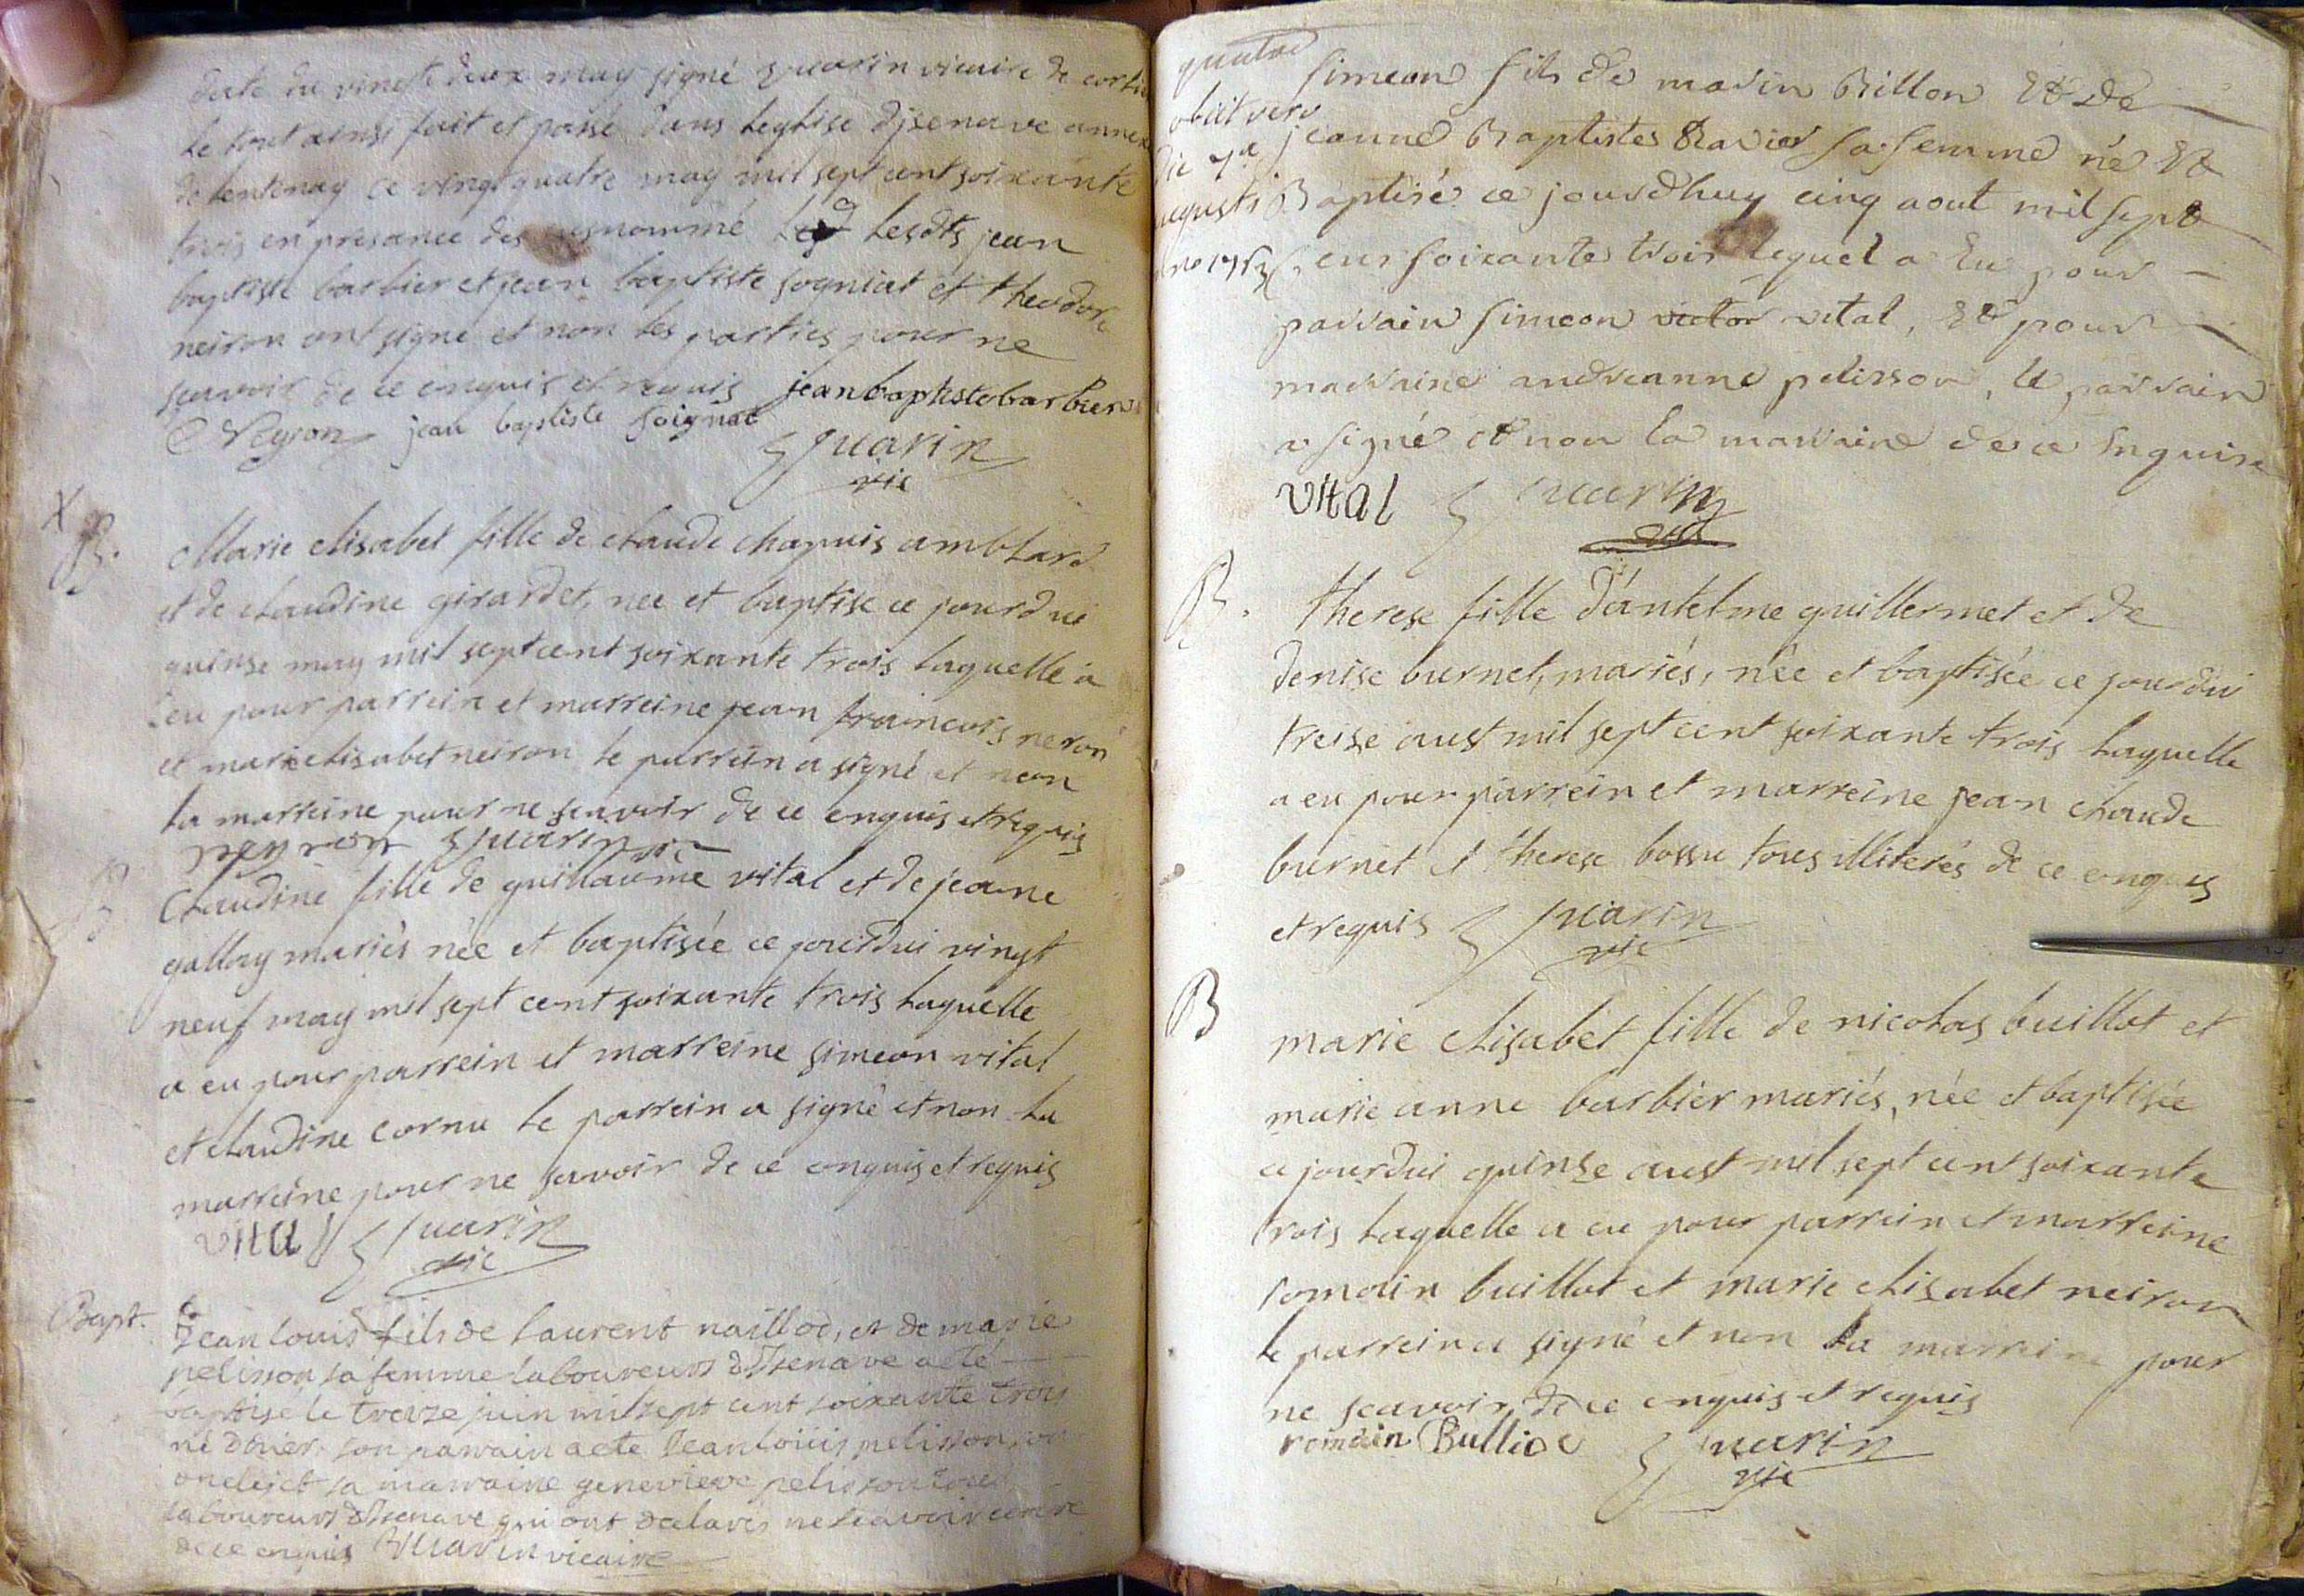 date du vingt deux may signé Quarin vicaire de
le tout ainsi fait et passé dans leglise djsenave annex
de lentenay ce vingt quatre may mil sept cent soixante
trois en presance des susnommé lesdts jean
baptiste barbier et jean baptiste sogniat et theodore
neiron ont signe et non les parties pour ne
scavoir de ce enquis et requis jean baptiste barbier
Neyron jean baptiste soignat
Quarin
vic
X
B.
Marie elisabet fille de claude chapuis amblard
et de claudine girardet, nee et baptise ce jourdui
quinse may mil sept cent soixante trois laquelle a
eu pour parrein et marreine jean francois neron
et marie elisabet neiron le parrein a signé et non
la marreine pour ne scavoir de ce enquis et requis
neyron Quarin vic
B
Claudine fille de guillaume vital et de jeane
gallay mariés née et baptisée ce jourdui vingt
neuf may mil sept cent soixante trois laquelle
a eu pour parrein et marreine simeon vital
et claudine cornu le parrein a signé et non la
marreine pour ne savoir de ce enquis et requis
vital Quarin
vic
Bapt.
Jean louis fils de laurent naillod, et de marie
pelisson sa femme laboureurs d'Isenave a eté
baptisé le treize juin mil sept cent soixante trois
né d'hier son parrain a ete Jean louis pelisson, son
oncle et sa marraine genevieve pelisson tous
laboureurs d'Isenave qui ont déclarés ne scavoir ecrire
de ce enquis Quarin vicaire
obiit vero
die 7a
augusti
anno 1763
simeon fils de marin Billon Et de
jeanne Baptiste Ravier sa femme né Et
Baptisé ce jourdhuy cinq aout mil sept
cens soixante trois lequel a Eu pour
parrain simeon victor vital, Et pour
marraine andreanne pelisson, le parrain
a signé et non la marraine de ce Enquise
vital Quarin
vic
B.
therese fille d'antelme guillermet et de
denise burnet, mariés, née et baptisée ce jourdui
treise aust mil sept cent soixante trois laquelle
a eu pour parrein et marreine jean claude
burnet et therese bossu tous illiterés de ce enquis
et requis Quarin
vic
B
marie elisabet fille de nicolas buillot et
marie anne barbier mariés, née et baptisée
ce jourdui quinse aust mil sept cent soixante
trois laquelle a eu pour parrein et marreine
romain buillot et marie elisabet neiron
le parrein a signé et non la marreine pour
ne scavoir de ce enquis et requis
romain Bulliod Quarin
vic